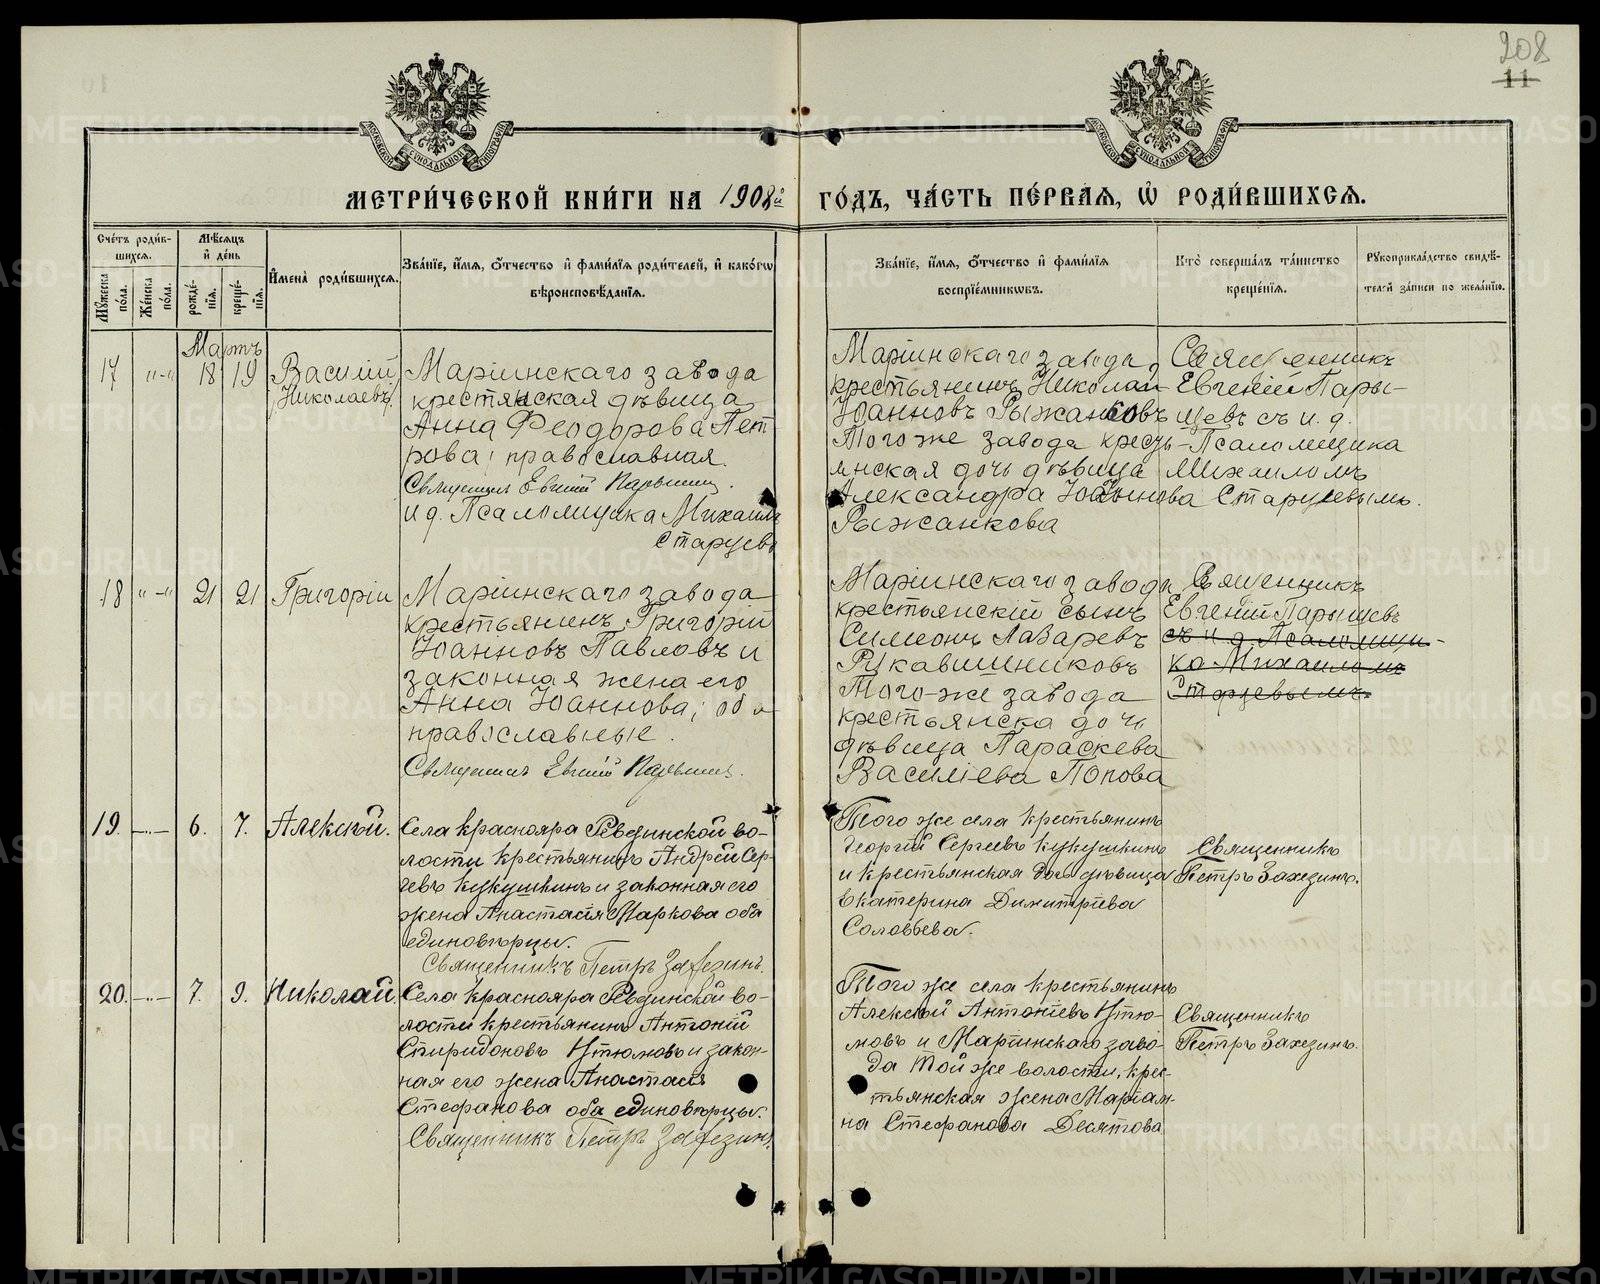 208
11
МОСКОВСКОЙ СѴНОДАЛЬНОЙ ТИПОГРАФІИ
МОСКОВСКОЙ СѴНОДАЛЬНОЙ ТИПОГРАФІИ
МЕТРИ́ЧЕСКОЙ КНИ́ГИ НА 1908й ГО́ДЪ, ЧА́СТЬ ПЕ́РВАѦ, Ѡ҆ РОДИ́ВШИХСѦ.
Сче́тъ роди́в-
шихсѧ.
Мꙋ́жеска по́ла.
Же́нска по́ла.
Мѣ́сѧцъ
и҆ де́нь
рожде́-нїѧ.
креще́-нїѧ.
И҆мена̀ роди́вшихсѧ.
Зва́нїе, и҆́мѧ, ѻ҆́тчество и҆ фами́лїѧ роди́телей, и҆ како́гѡ
вѣроисповѣ́данїѧ.
Зва́нїе, и҆́мѧ, ѻ҆́тчество и҆ фами́лїѧ
воспрїе́мникѡвъ.
Кто̀ соверша́лъ та́инство
креще́нїѧ.
Рꙋкоприкла́дство свидѣ́-
телей за́писи по жела́нїю.
Мартъ
17 „-„ 18 19 Василій
Николаевъ
Маріинскаго завода
крестянская дѣвица
Анна Феодорова Пет
рова; православная.
Священникъ Евгеній Парышевъ.
и д. Псаломщика Михаилъ
Старцевъ
Маріинскаго завода,
крестьянинъ Николай
Іоанновъ Рыжанковъ
Того же завода кресть-
янская дочь дѣвица
Александра Іоаннова
Рыжанкова
Священникъ
Евгеній Пары-
шевъ съ и. д.
Псаломщика
Михаиломъ
Старцевымъ.
18 „-„ 21 21 Григорій
Маріинскаго завода
крестьянинъ Григорій
Іоанновъ Павловъ и
законная жена его
Анна Іоаннова; оба
православные.
Священникъ Евгеній Парышевъ.
Маріинскаго завода
крестьянскій сынъ
Симеонъ Лазаревъ
Рукавишниковъ
Того-же завода
крестьянска дочь
дѣвица Параскева
Василіева Попова
Священникъ
Евгеній Парышевъ
съ и. д. Псаломщи-
ка Михаиломъ
Старцевымъ
19. -„- 6. 7. Алексѣй.
Села Краснояра Ревдинской во-
лости крестьянинъ Андрей Сер-
гѣевъ Кукушкинъ и законная его
жена Анастасія Маркова оба
единовѣрцы.
Священникъ Петръ Захезинъ.
Того же села крестьянинъ
Георгій Сергѣевъ Кукушкинъ
и крестьянская дочь дѣвица
Екатерина Димитріева
Соловьева.
Священникъ
Петръ Захезинъ.
20. -„- 7. 9. Николай.
Села Краснояра Ревдинской во-
лости крестьянинъ Антоній
Спиридоновъ Утюмовъ и закон-
ная его жена Анастасія
Стефанова оба единовѣрцы.
Священникъ Петръ Захезинъ.
Того же села крестьянинъ
Алексѣй Антоніевъ Утю-
мовъ и Маріинскаго заво-
да той же волости, крес-
тьянская жена Маріам-
на Стефанова Десятова
Священникъ
Петръ Захезинъ.
METRIKI.GASO-URAL.RU